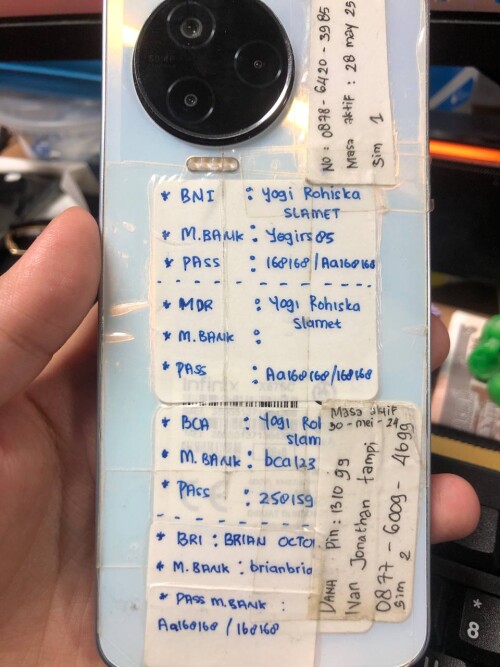 No : 0878 - 6420 - 3985
Masa aktif : 28 may 25
Sim 1
* BNI : Yogi Rohiska
SLAMET
* M.BANK : Yogirs85
* PASS : 168168 / Aa168168
* MDR : Yogi Rohiska
Slamet
* M.BANK :
* PASS : Aa168168/168168
* BCA : Yogi Rol
slam
* M.BANK : bca123
* PASS : 250159
* BRI : BRIAN OCTO
* M.BANK : brianbria
* PASS M.BANK :
Aa168168 / 168168
Masa aktif
30 - mei - 24
DANA Pin : 131099
Ivan Jonathan tampi
0877 - 6009 - 4699
sim 2
8